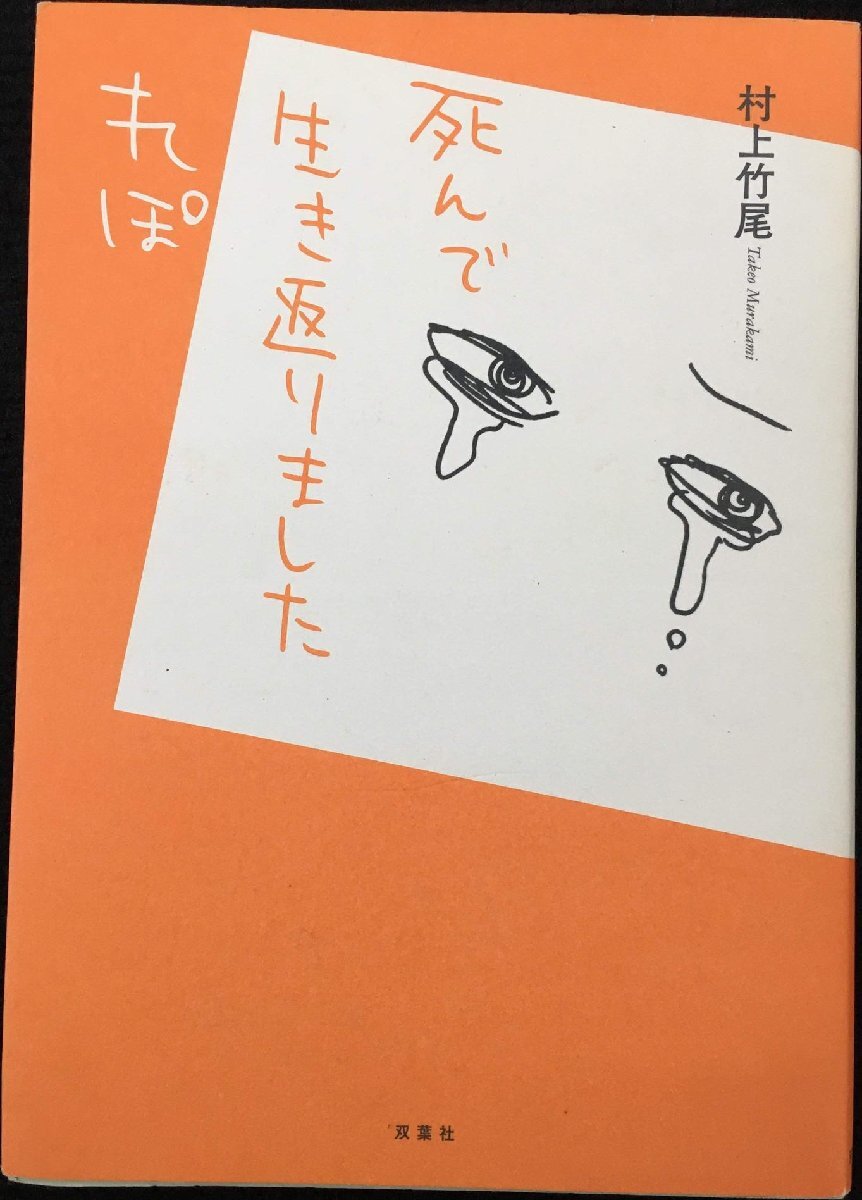 村上竹尾
Takeo Murakami
死んで
生き返りました
れぽ
双葉社